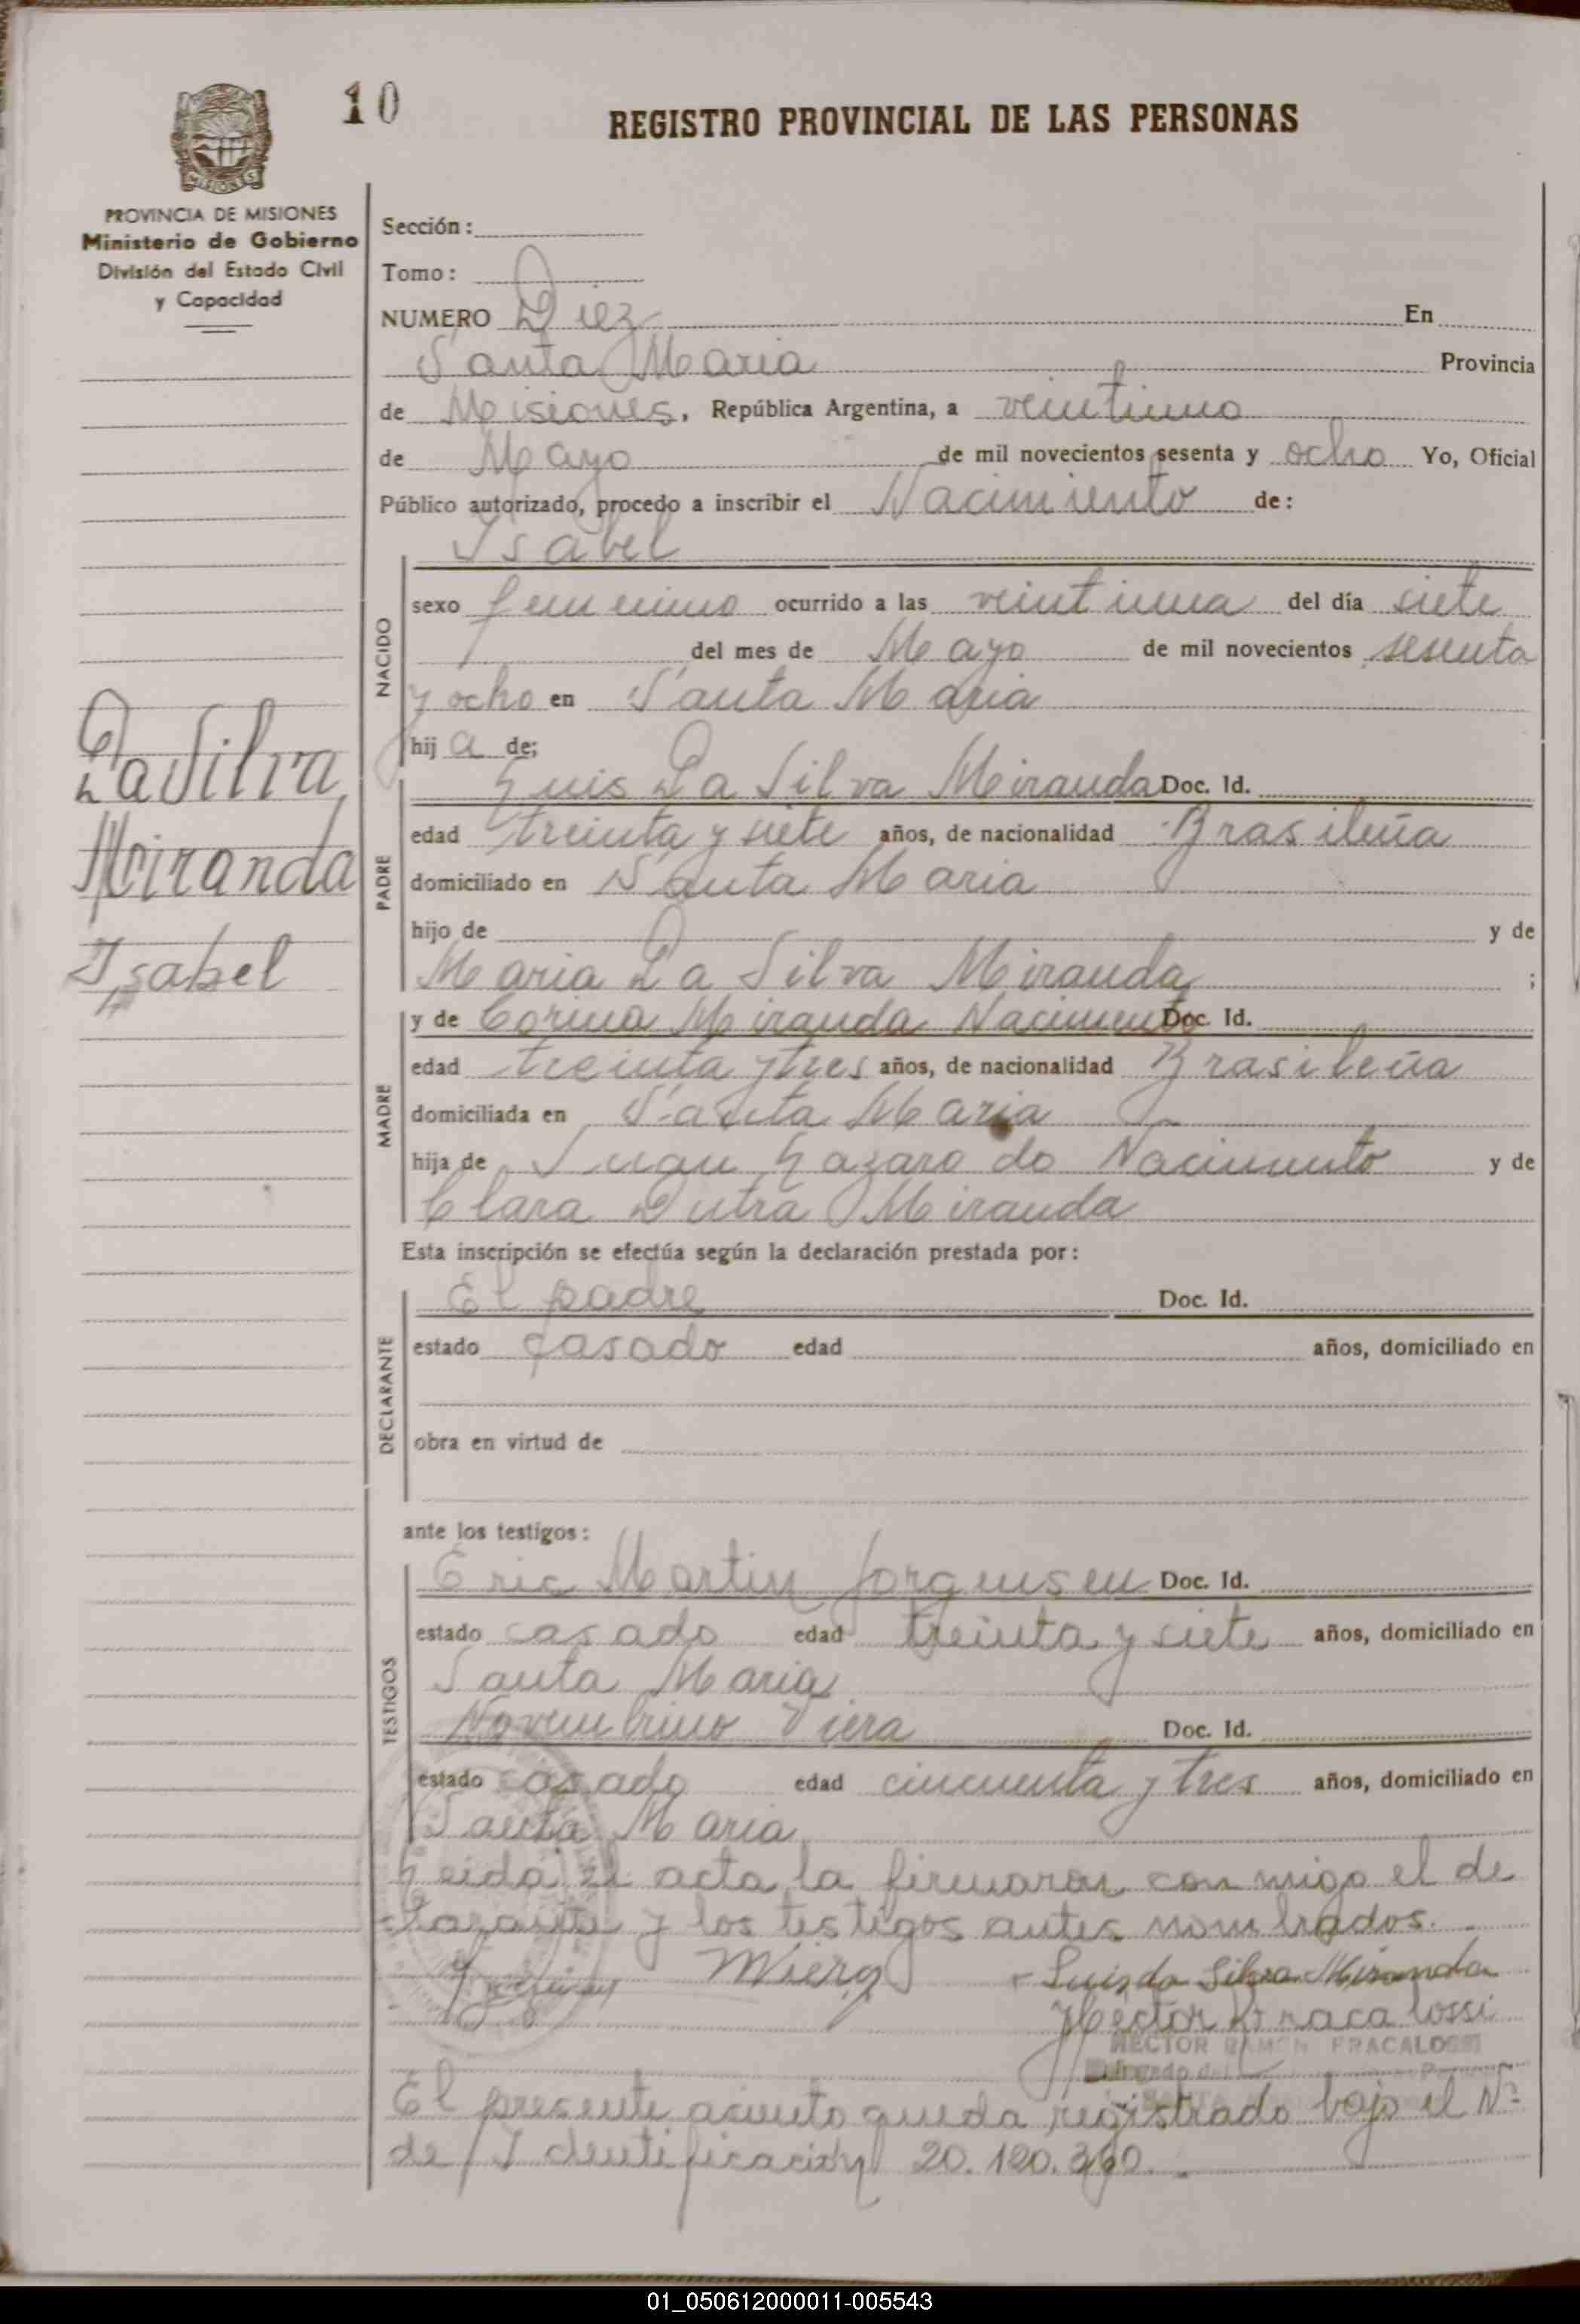 10
REGISTRO PROVINCIAL DE LAS PERSONAS
MISIONES
PROVINCIA DE MISIONES
Ministerio de Gobierno
División del Estado Civil
y Capacidad
Sección:
Tomo:
NUMERO Diez En
Santa Maria Provincia
de Misiones, República Argentina, a veintiuno
de Mayo de mil novecientos sesenta y ocho Yo, Oficial
Público autorizado, procedo a inscribir el Nacimiento de:
Ysabel
NACIDO
sexo femenino ocurrido a las veintiuna del día siete
del mes de Mayo de mil novecientos sesenta
y ocho en Santa Maria
hija de;
Da Silva
Miranda
Isabel
PADRE
Luis Da Silva Miranda Doc. Id.
edad treinta y siete años, de nacionalidad Brasileña
domiciliado en Santa Maria
hijo de y de
Maria Da Silva Miranda ;
MADRE
y de Corina Miranda Nacimento Doc. Id.
edad treinta y tres años, de nacionalidad Brasileña
domiciliada en Santa Maria
hija de Juan Lazaro do Nacimento y de
Clara Dutra Miranda
Esta inscripción se efectúa según la declaración prestada por:
DECLARANTE
El padre Doc. Id.
estado casado edad años, domiciliado en
obra en virtud de
ante los testigos:
TESTIGOS
Eric Martin Jorgensen Doc. Id.
estado casado edad treinta y siete años, domiciliado en
Santa Maria
Novembrino Viera Doc. Id.
estado casado edad cincuenta y tres años, domiciliado en
Santa Maria
Leida el acta la firmaron conmigo el de
clarante y los testigos antes nombrados.
Luis da Silva Miranda
Hector R Fracalossi
HECTOR RAMON FRACALOSSI
El presente aciento queda registrado bajo el Nº
de Identificación 20.120.360.
01_050612000011-005543